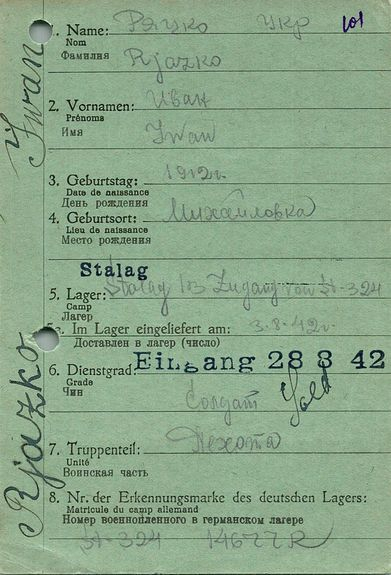 1. Name: Ряzко Укр
Nom
Фамилия Rjazko
2. Vornamen: Иван
Prénoms
Имя Iwan
3. Geburtstag: 1912г.
Date de naissance
День рождения
4. Geburtsort: Михайловка
Lieu de naissance
Место рождения
Stalag
5. Lager: Stalag Zugang von St-324
Camp
Лагерь
Im Lager eingeliefert am: 3.8.42г.
Доставлен в лагерь (число)
Eingang 28 8 42
6. Dienstgrad:
Grade
Чин Солдат Sold
7. Truppenteil: Пехота
Unité
Воинская часть
8. Nr. der Erkennungsmarke des deutschen Lagers:
Matricule du camp allemand
Номер военнопленного в германском лагере
St-324 14677 R
Rjazko Iwan